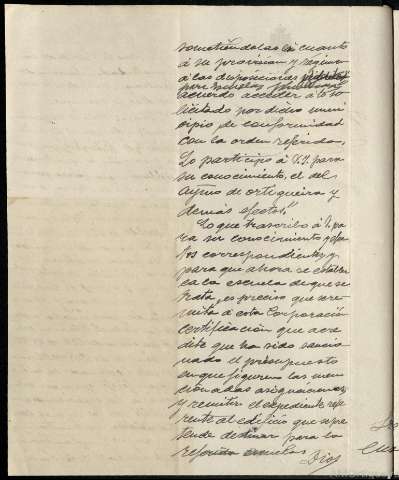 sometiéndolas en cuanto
á su provision y régimen
á las disposiciones
para escuelas
acuerdo acceder á lo so
licitado por dicho muni
cipio de conformidad
con la orden referida.
Lo participo á V.S. para
su conocimiento, el del
Aytmo de Ortigueira y
demás efectos."
Lo que trascribo á V. pa
ra su conocimiento y efec
tos correspondientes, y
para que ahora se establez
ca la escuela de que se
trata, es preciso que se re
mita á esta Corporación
certificación que acre
dite que ha sido sancio
nado el presupuesto
en que figuren las men
cionadas asignaciones,
y remitir el expediente refe
rente al edificio que se pre
tende destinar para la
referida escuela.
Dios